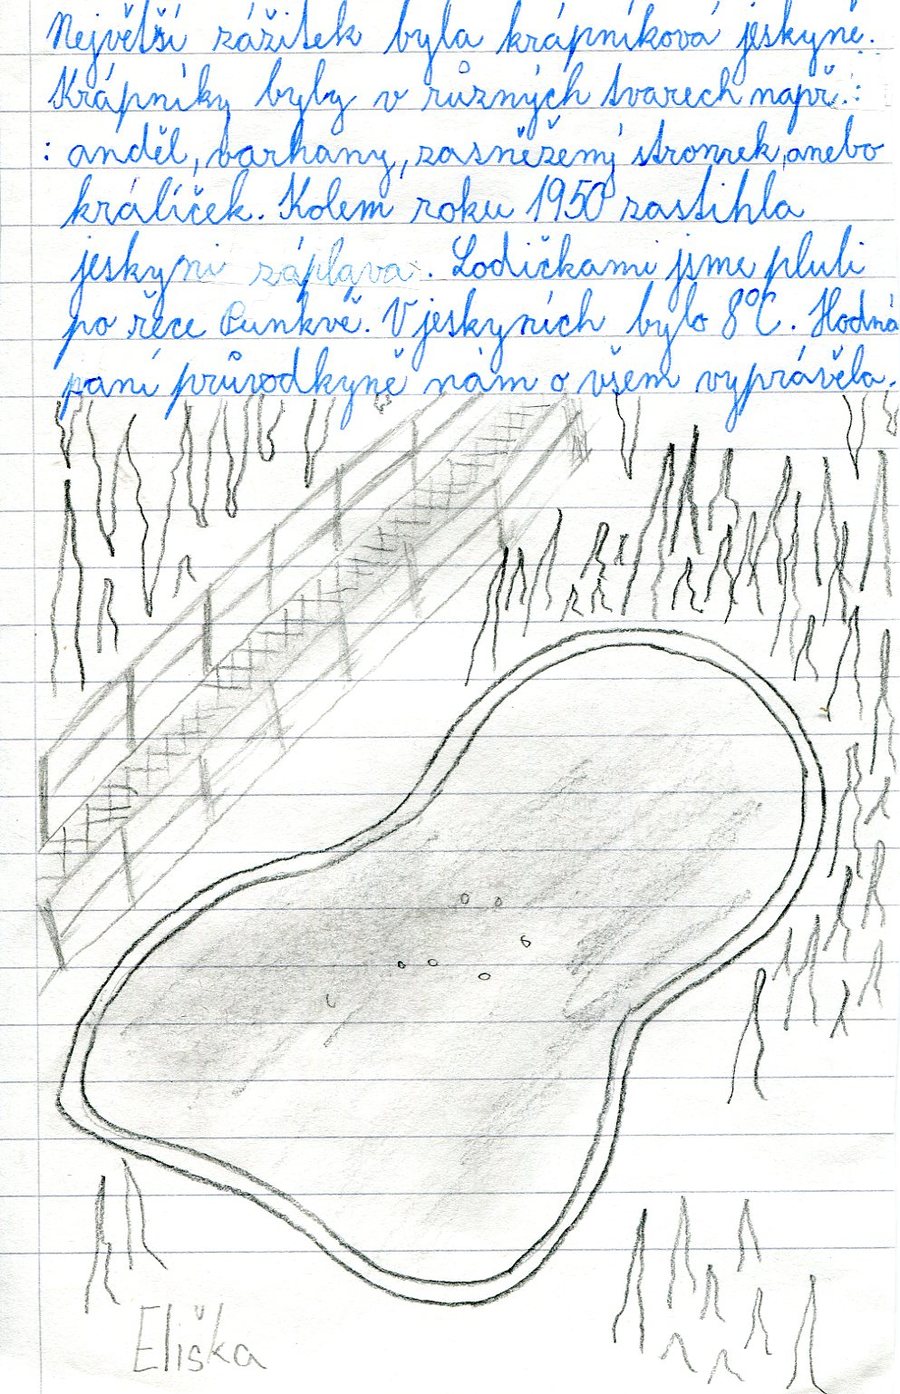 Největší zážitek byla krápníková jeskyně.
Krápníky byly v různých tvarech např.:
: anděl, varhany, zasněžený stromek, anebo
králíček. Kolem roku 1950 zastihla
jeskyni záplava. Lodičkami jsme pluli
po řece Punkvě. V jeskyních bylo 8°C. Hodná
paní průvodkyně nám o všem vyprávěla.
Eliška